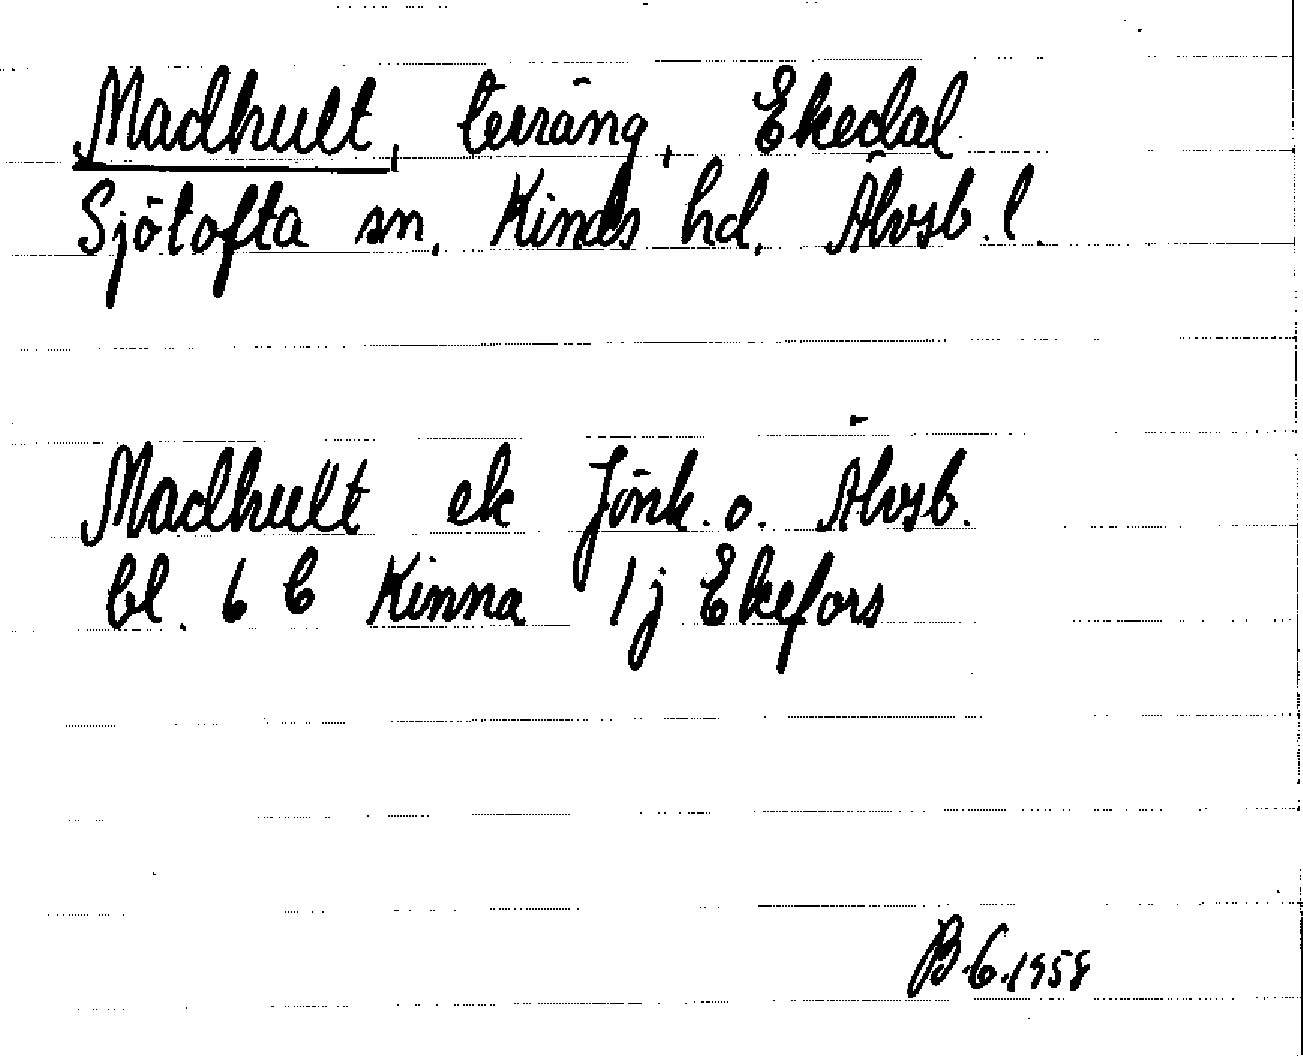 Madhult, terräng, Ekedal
Sjötofta sn. Kinds hd. Älvsb. l.
Madhult ek Jönk. o. Älvsb.
bl. 6 C Kinna 1j Ekefors
B.G.1958